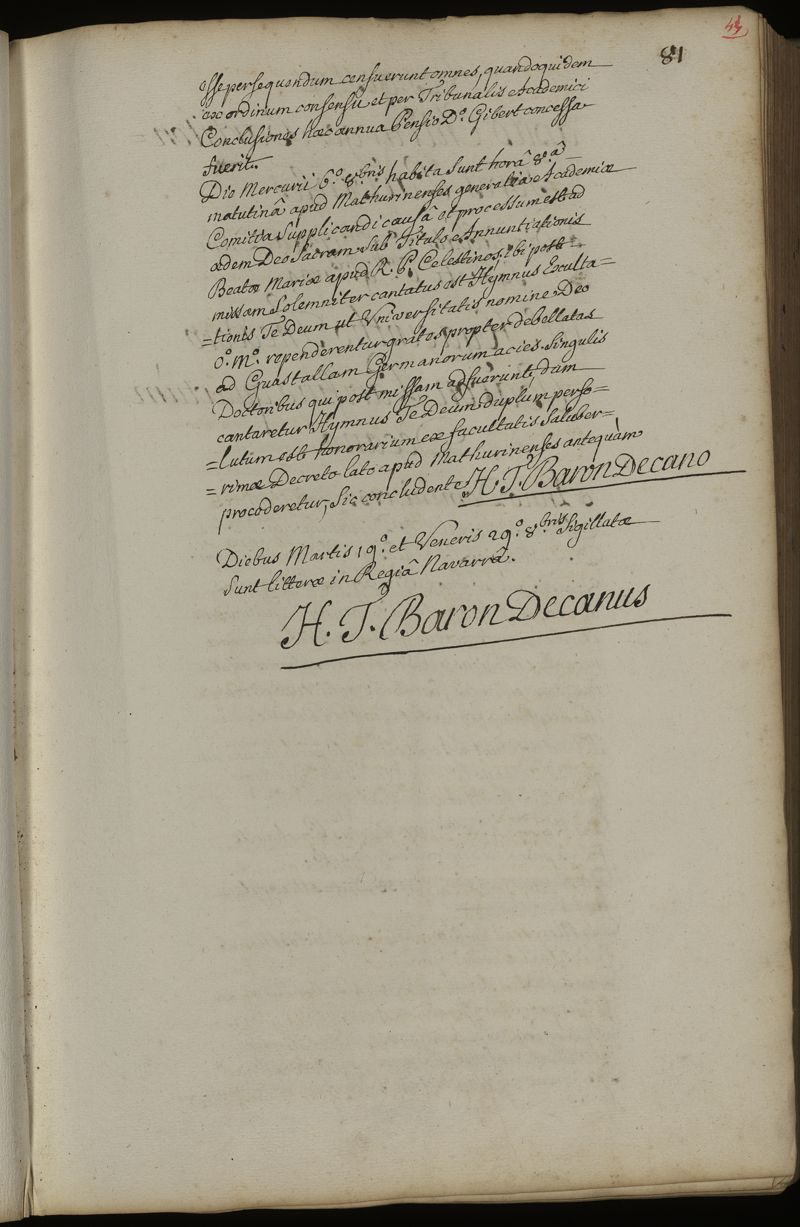 81
esse persequendum censuerunt omnes, quandoquidem
ex ordinum consensu et per Tribunalis Academici
Conclusiones hæc annua Pensio D.o Gibert concessa
fuerit.
Die Mercurii 6.o 8.bris habita sunt horâ 8.â
matutinâ apud Mathurinenses generalia Academiæ
Comitia Supplicandi causâ et processum est ad
ædem Deo Sacram sub Titulo Annuntiationis
Beatæ Mariæ apud R. P. Celestinos, ibi post
missam Solemniter cantatus est Hymnus Exulta=
=tionis Te Deum ut Universitatis nomine Deo
O.o M.o rependerentur grates propter debellatas
ad Guastallam Germanorum acies. Singulis
Doctoribus qui post missam adfuerunt, dum
cantaretur Hymnus Te Deum duplum perso=
=lutum est honorarium ex facultatis Saluber=
=rimæ Decreto lato apud Mathurinenses antequam
procederetur, Sic concludente H. T. Baron Decano
Diebus Martis 19.o et Veneris 29.o 8.bris Sigillatæ
Sunt litteræ in Regiâ Navarrâ.
H. T. Baron Decanus